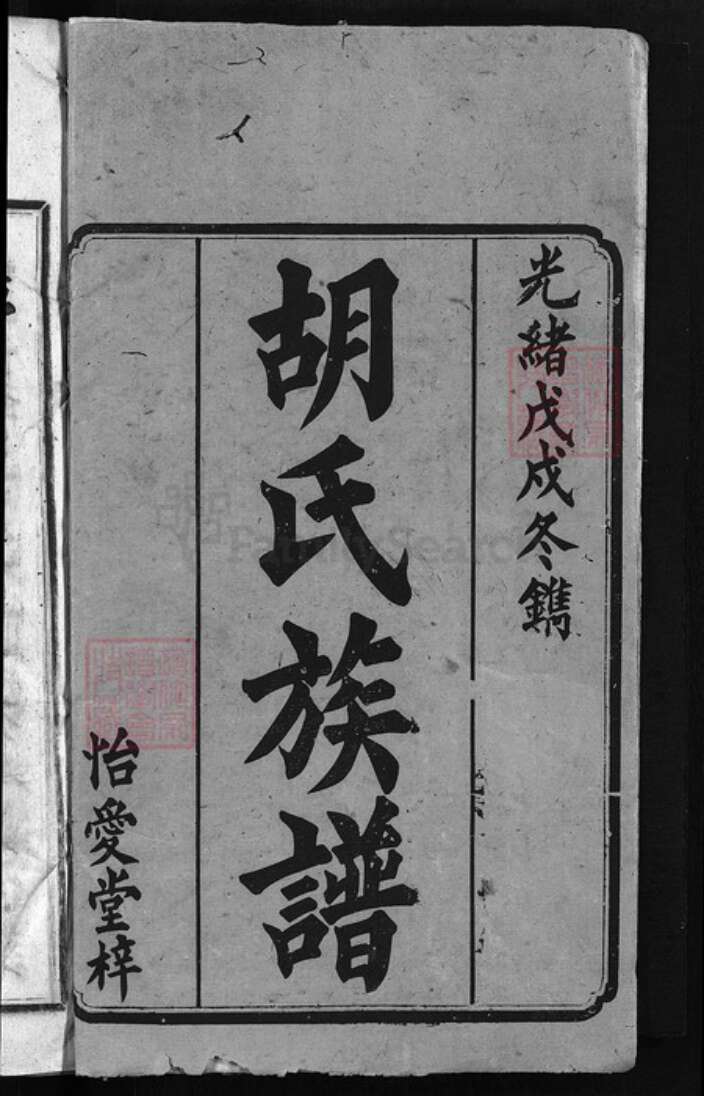 光緒戊戌冬鐫
胡氏族譜
怡愛堂梓
FamilySearch